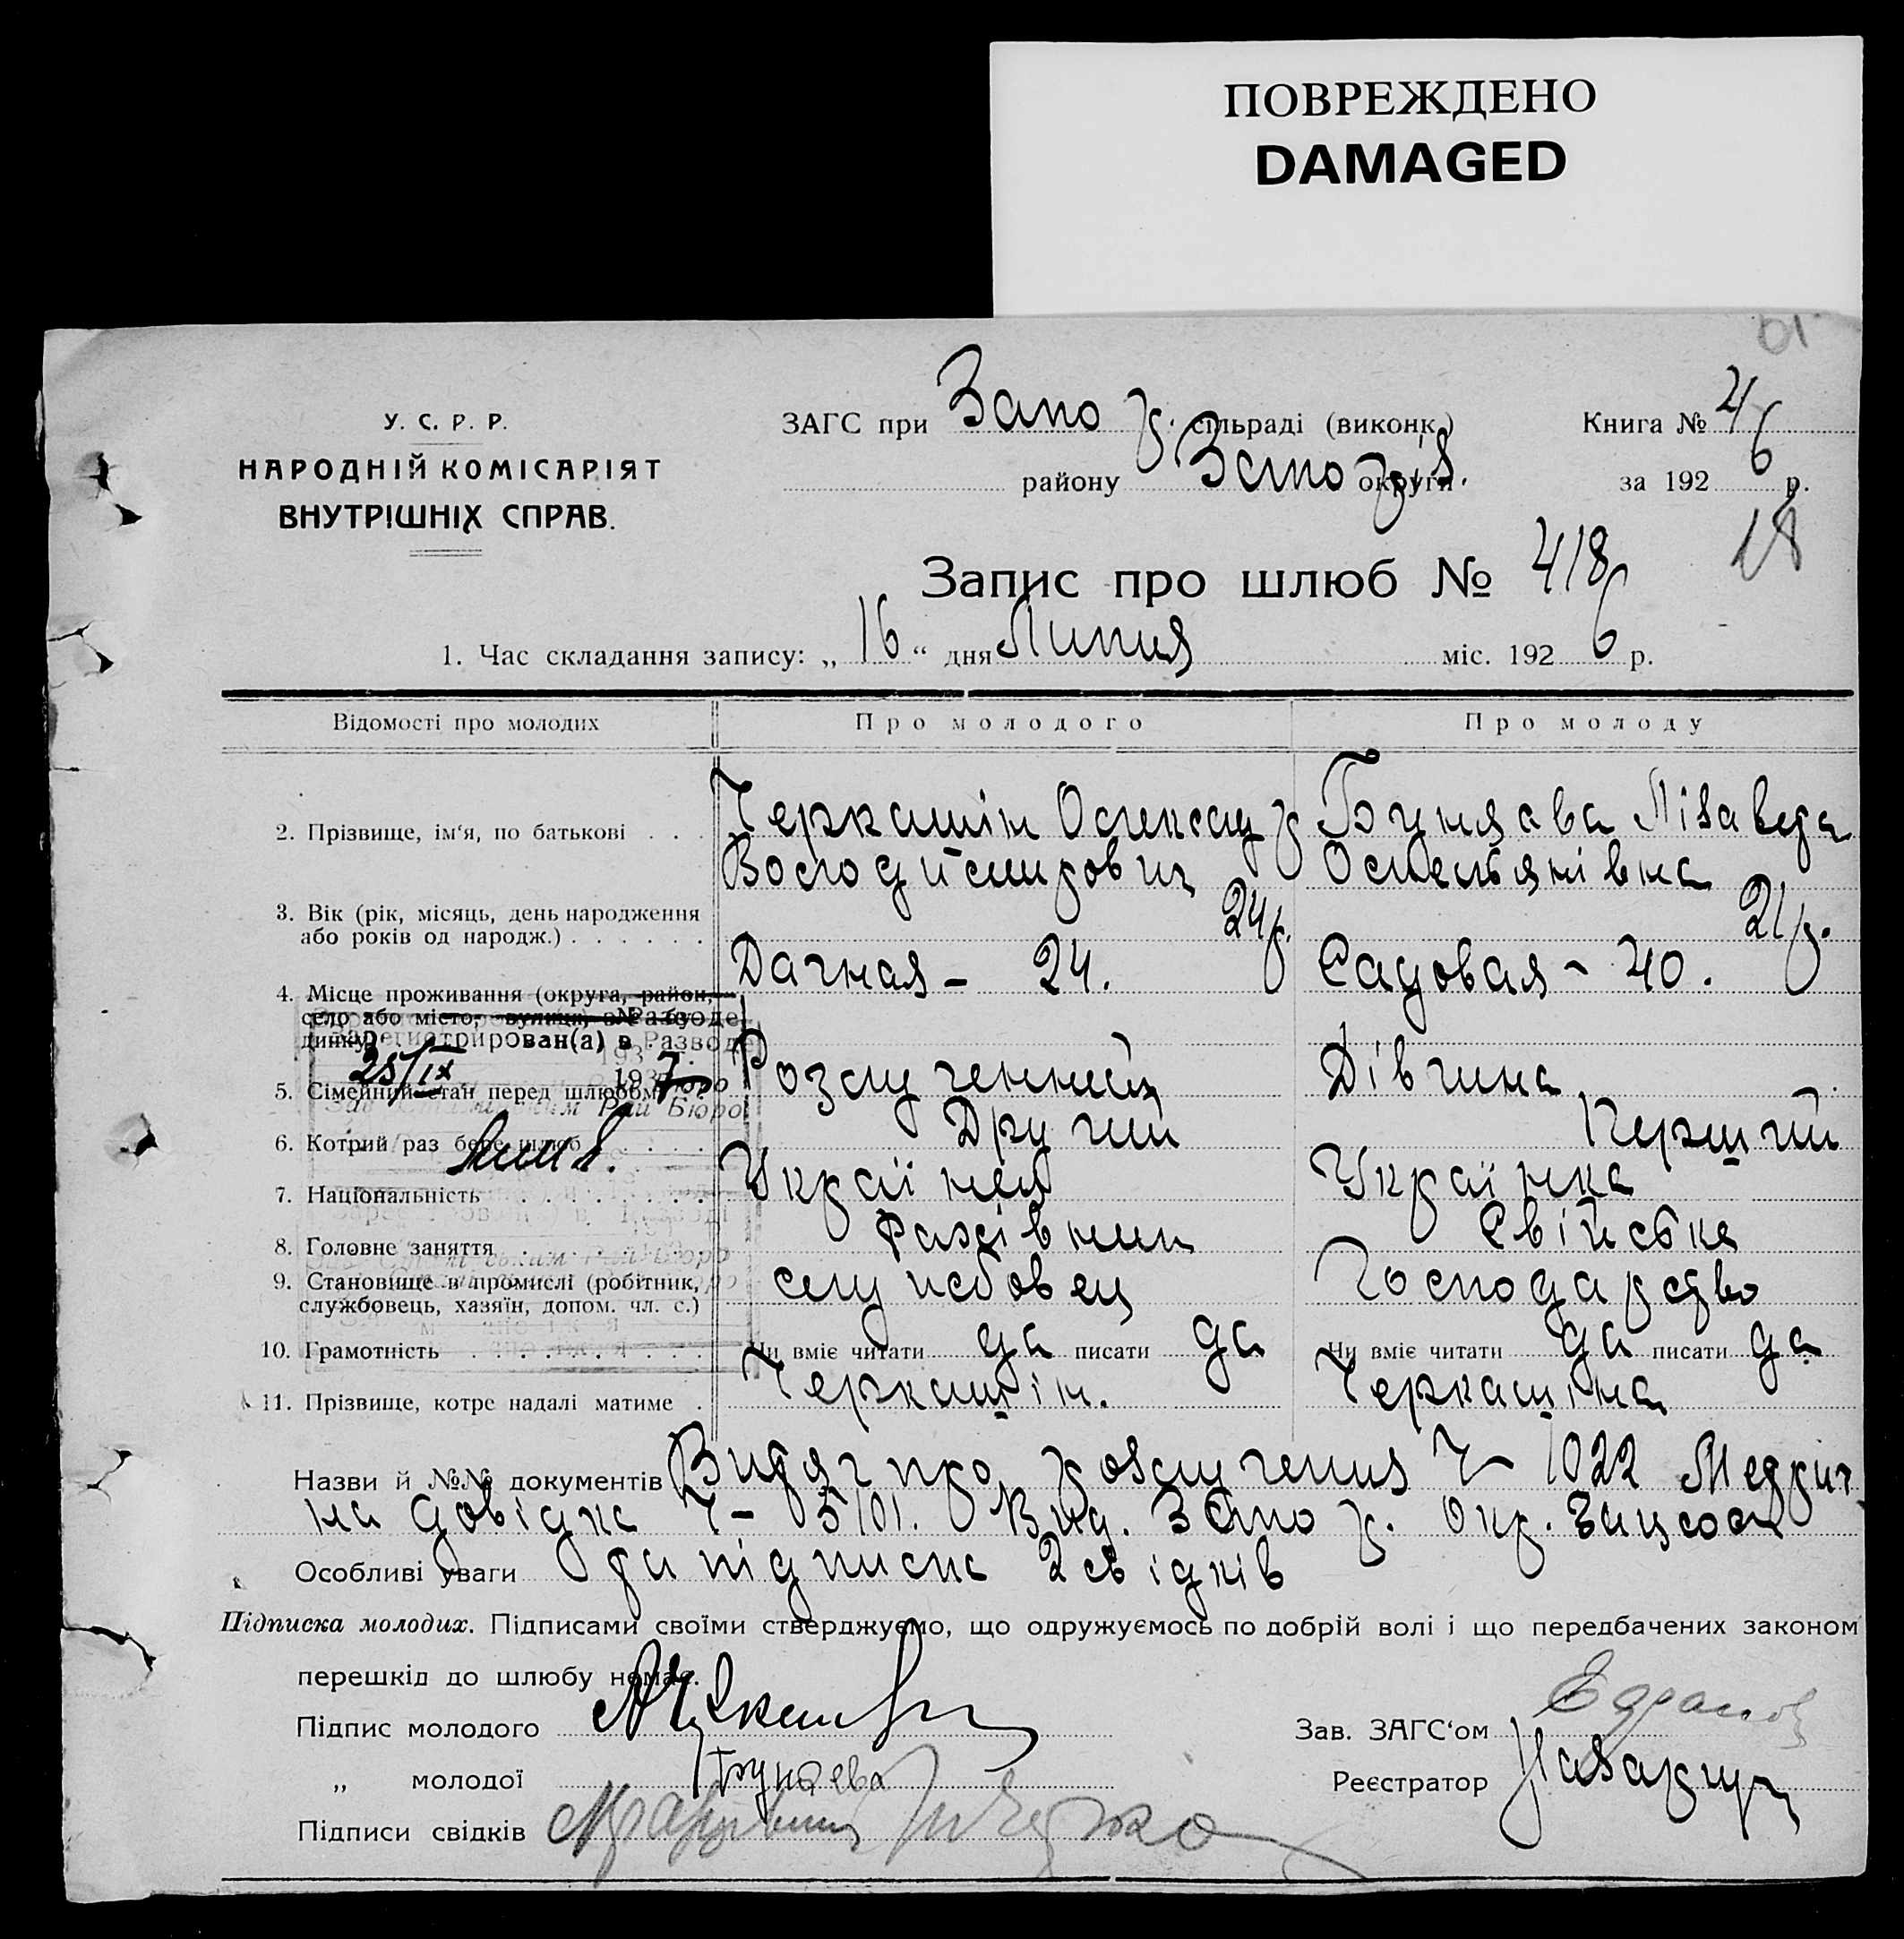 ПОВРЕЖДЕНО
DAMAGED
У. С. Р. Р.
НАРОДНІЙ КОМІСАРІЯТ
ВНУТРІШНІХ СПРАВ.
ЗАГС при Запор. сільраді (виконк.)
Книга № 4
району Запоріз. округи
за 1926 р.
18
Запис про шлюб № 418
1. Час складання запису: „16“ дня Липня міс. 1926 р.
Відомості про молодих
Про молодого
Про молоду
2. Прізвище, ім'я, по батькові
Черкашін Олександр
Володимирович
Буняєва Лізавета
Омельянівна
3. Вік (рік, місяць, день народження
або років од народж.)
24 р.
21 р.
4. Місце проживання (округа, район,
село або місто, вулиця, № бу-
динку)
Дачная - 24.
Садовая - 40.
Зарегистрирован(а) в Разводе
25/IX 1937
5. Сімейний стан перед шлюбом
Розлученний
Дівчина
6. Котрий раз бере шлюб
Другий
Перший
7. Національність
Українець
Українка
8. Головне заняття
Фахівник
Свійське
9. Становище в промислі (робітник,
службовець, хазяїн, допом. чл. с.)
службовець
Господарство
10. Грамотність
Чи вміє читати да писати да
Чи вміє читати да писати да
11. Прізвище, котре надалі матиме
Черкашін.
Черкашіна
Назви й №№ документів Витяг про розлучення Ч- 1022 Медкич
на довідка Ч- 5101. Вид. Запор. Окр. Загсом
Особливі уваги та підписка 2 свідків
Підписка молодих. Підписами своїми стверджуємо, що одружуємось по добрій волі і що передбачених законом
перешкід до шлюбу немає.
Підпис молодого
Зав. ЗАГС'ом
„ молодої Буняева
Реєстратор
Підписи свідків